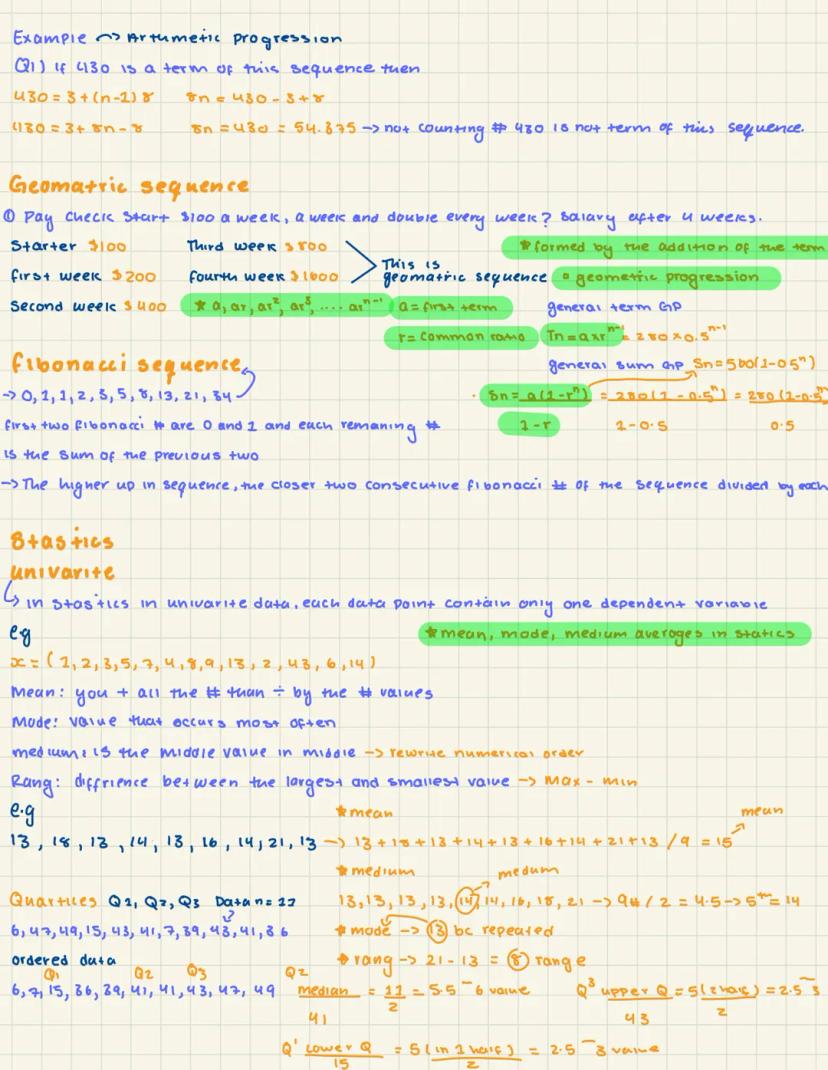 Example ~> Artumetic progression
Q1) If 430 is a term of this sequence then
430 = 3 + (n-1) 8    8n = 430 - 3 + 8
430 = 3 + 8n - 8    8n = 430 = 54.375 -> not counting # 430 is not term of this sequence.
Geomatric sequence
① Pay check start $100 a week, a week and double every week? Salary after 4 weeks.
Starter $100    Third week $800    * formed by the addition of the term
first week $200    fourth week $1600    This is geomatric sequence    ▫ geometric progression
Second week $400    * a, ar, ar², ar³, .... ar^n-1    a = first term    general term GP
r = common ratio    Tn = axr^n-1 = 280 x 0.5^n-1
fibonacci sequence    general sum GP    Sn = 560(1-0.5^n)
-> 0, 1, 1, 2, 3, 5, 8, 13, 21, 34    Sn = a(1-r^n) / 1-r = 280(1-0.5^n) / 1-0.5 = 280(1-0.5^n / 0.5
first two fibonacci # are 0 and 1 and each remaning #
is the sum of the previous two
-> The higher up in sequence, the closer two consecutive fibonacci # of the sequence divided by each
Stastics
univarite
↳ in stastics in univarite data, each data point contain only one dependent variable
eg    * mean, mode, medium averoges in statics
x = (1, 2, 3, 5, 7, 4, 8, 9, 13, 2, 43, 6, 14)
Mean: you + all the # than ÷ by the # values
Mode: value that occurs most often
medium: is the middle value in middle -> rewrite numerical order
Rang: diffrience between the largest and smallest value -> Max - min
e.g    * mean    mean
13, 18, 13, 14, 13, 16, 14, 21, 13 -> 13 + 18 + 13 + 14 + 13 + 16 + 14 + 21 + 13 / 9 = 15
* medium    medum
Quartiles Q1, Q2, Q3 Data n = 11    13, 13, 13, 13, 14, 14, 16, 18, 21 -> 9# / 2 = 4.5 -> 5th = 14
6, 47, 49, 15, 43, 41, 7, 39, 43, 41, 36    * mode -> 13 bc repeated
ordered data    * rang -> 21 - 13 = 8 range
Q1    Q2    Q3    Q2
6, 7, 15, 36, 39, 41, 41, 43, 47, 49    median / 41 = 11 / 2 = 5.5 ‾ 6 value    Q³ upper Q / 43 = 5(2 half) / 2 = 2.5 ‾ 3
Q' lower Q / 15 = 5(in 1 half) / 2 = 2.5 ‾ 3 value